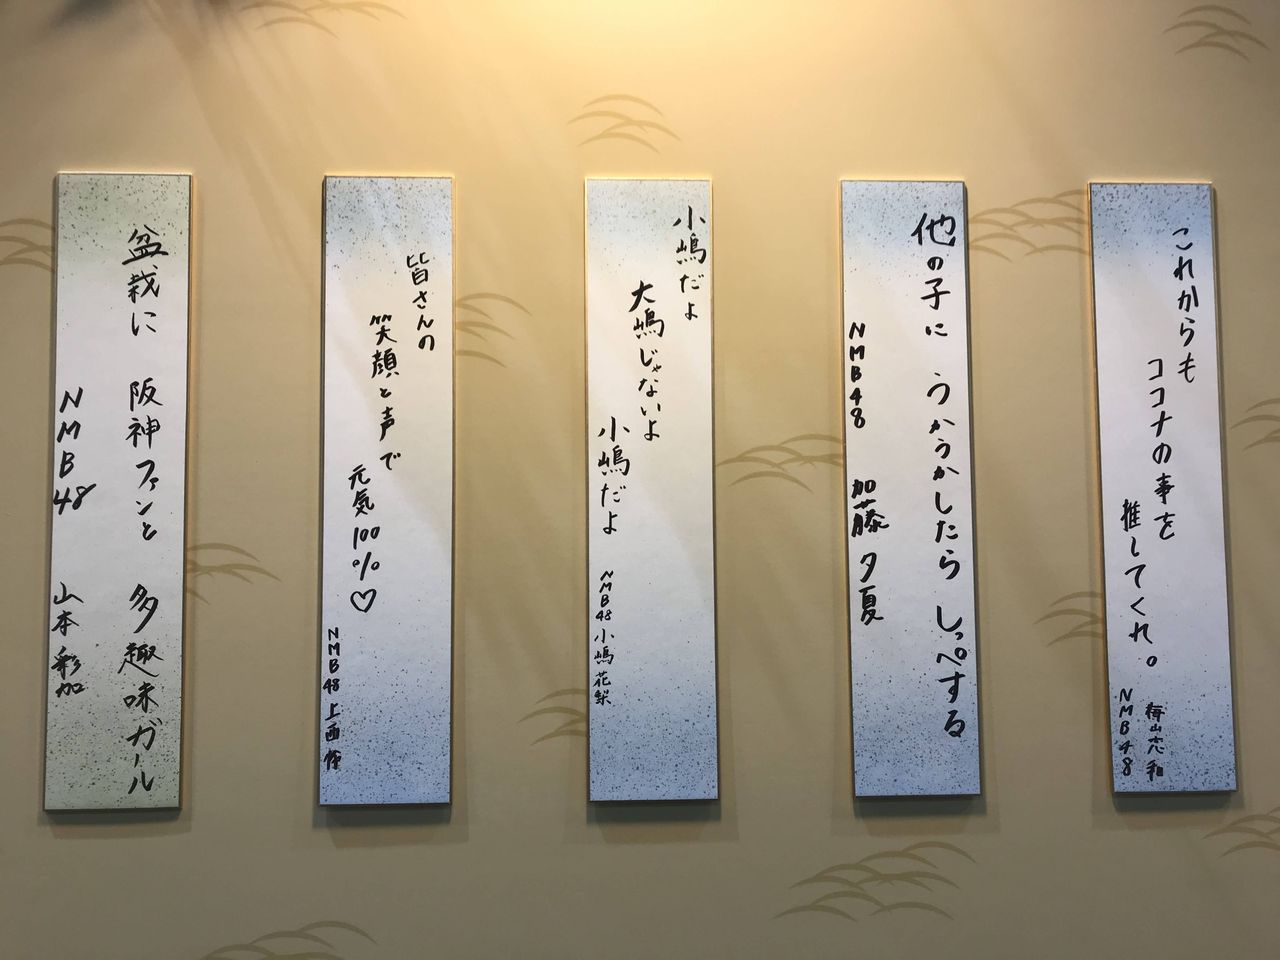 これからも
ココナの事を
推してくれ。
梅山恋和
NMB48
他の子に うかうかしたら しっぺする
NMB48 加藤夕夏
小嶋だよ
大嶋じゃないよ
小嶋だよ
NMB48 小嶋花梨
皆さんの
笑顔と声で
元気100%♡
NMB48 上西怜
盆栽に 阪神ファンと 多趣味ガール
NMB48 山本彩加